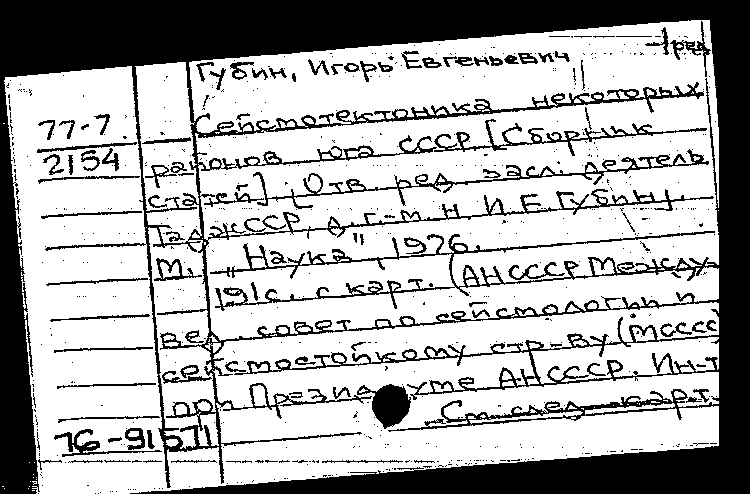 -1ред
Губин, Игорь Евгеньевич
77-7
2154
Сейсмотектоника некоторых
районов юга СССР [Сборник
статей] [Отв. ред. засл. деятель
ТаджССР, д. г.-м. н И.Е.Губин].
М. „Наука", 1976.
191с. с карт. (АНСССР Между-
вед. совет по сейсмологии и
сейсмостойкому стр-ву (МСССС)
при Президиуме АНСССР. Ин-т
См след карт.
76-91571